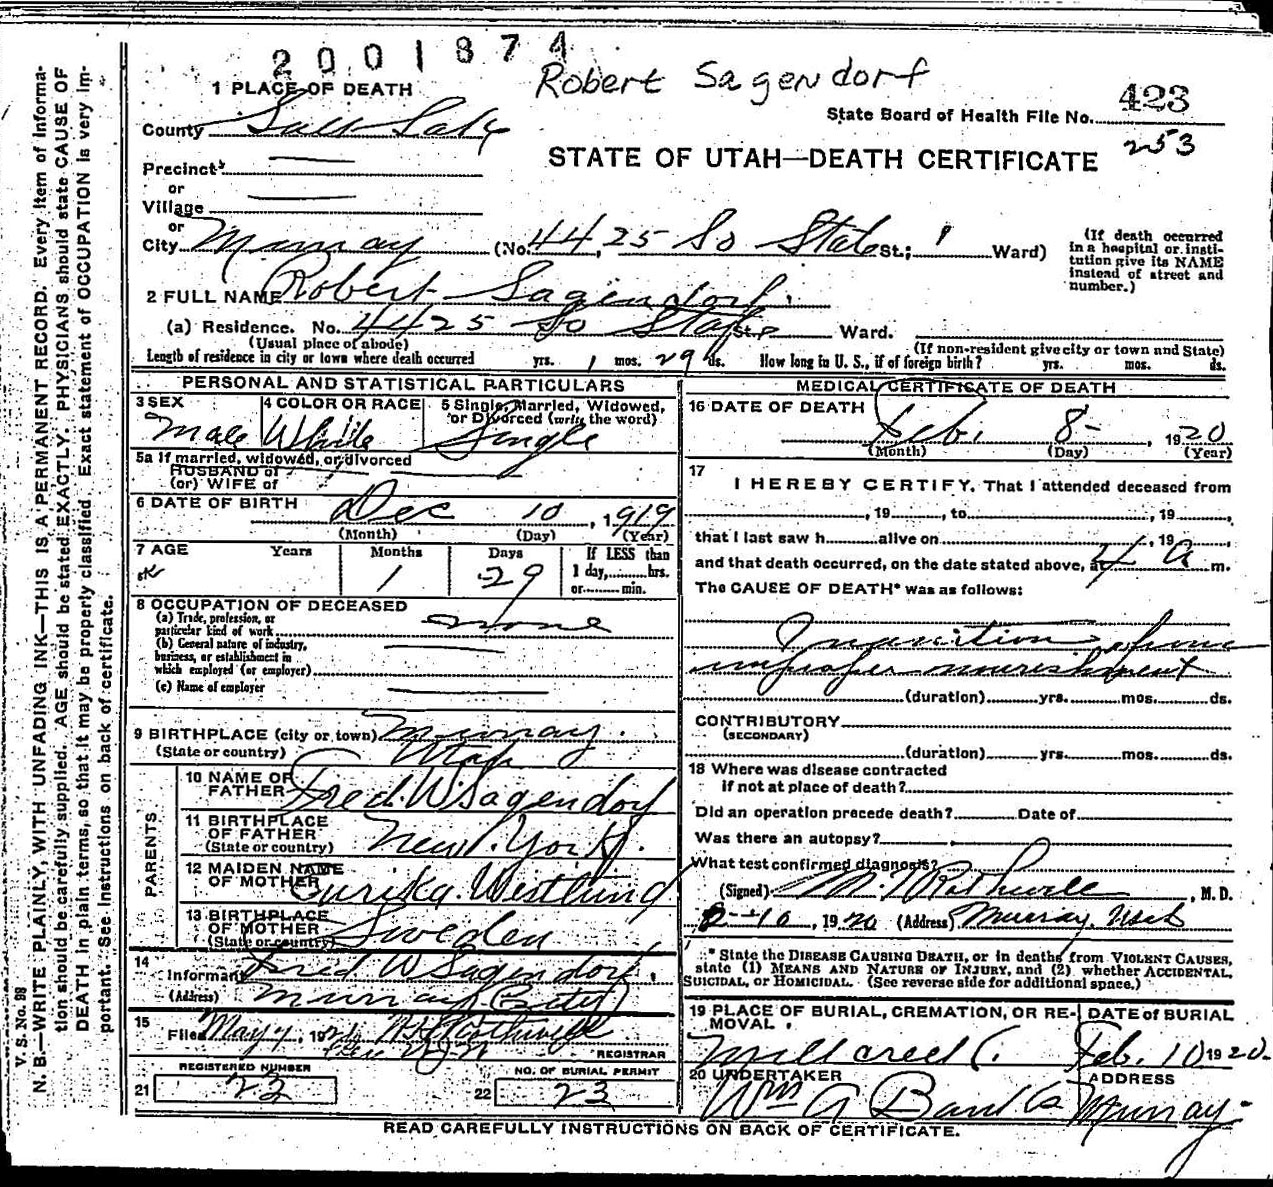 2001874
Robert Sagendorf
1 PLACE OF DEATH
State Board of Health File No. 423
253
County Salt Lake
STATE OF UTAH—DEATH CERTIFICATE
Precinct
or
Village
or
City Murray (No. 4425 So State St.; Ward)
(If death occurred in a hospital or institution give its NAME instead of street and number.)
2 FULL NAME Robert Sagendorf.
(a) Residence. No. 4425 So State St. Ward.
(Usual place of abode) (If non-resident give city or town and State)
Length of residence in city or town where death occurred yrs. 1 mos. 29 ds. How long in U. S., if of foreign birth? yrs. mos. ds.
PERSONAL AND STATISTICAL PARTICULARS
3 SEX Male
4 COLOR OR RACE White
5 Single, Married, Widowed, or Divorced (write the word) Single
5a If married, widowed, or divorced
HUSBAND of
(or) WIFE of
6 DATE OF BIRTH Dec 10, 1919
(Month) (Day) (Year)
7 AGE Years Months Days If LESS than
1 29 1 day,......hrs.
or......min.
8 OCCUPATION OF DECEASED
(a) Trade, profession, or particular kind of work none
(b) General nature of industry, business, or establishment in which employed (or employer)
(c) Name of employer
9 BIRTHPLACE (city or town) Murray.
(State or country) Utah
PARENTS
10 NAME OF FATHER Fred. W. Sagendorf
11 BIRTHPLACE OF FATHER (State or country) New York.
12 MAIDEN NAME OF MOTHER Eurika. Westlund
13 BIRTHPLACE OF MOTHER (State or country) Sweden
14 Informant Fred W Sagendorf.
(Address) Murray City
15 Filed May 7, 192
REGISTRAR
21 REGISTERED NUMBER 23
22 NO. OF BURIAL PERMIT 23
MEDICAL CERTIFICATE OF DEATH
16 DATE OF DEATH Feb. 8- , 1920
(Month) (Day) (Year)
17 I HEREBY CERTIFY, That I attended deceased from
, 19 , to , 19 ,
that I last saw h alive on , 19
and that death occurred, on the date stated above, at 4 a m.
The CAUSE OF DEATH* was as follows:
Inanition from
improper nourishment
(duration) yrs. mos. ds.
CONTRIBUTORY
(SECONDARY)
(duration) yrs. mos. ds.
18 Where was disease contracted
if not at place of death?
Did an operation precede death? Date of
Was there an autopsy?
What test confirmed diagnosis?
(Signed) Rothwell, M. D.
2-10, 1920 (Address) Murray, Utah
* State the DISEASE CAUSING DEATH, or in deaths from VIOLENT CAUSES,
state (1) MEANS AND NATURE OF INJURY, and (2) whether ACCIDENTAL,
SUICIDAL, or HOMICIDAL. (See reverse side for additional space.)
19 PLACE OF BURIAL, CREMATION, OR REMOVAL
DATE of BURIAL
Feb. 10 1920.
20 UNDERTAKER ADDRESS
Wm A Murray
READ CAREFULLY INSTRUCTIONS ON BACK OF CERTIFICATE.
V. S. No. 98
N. B.—WRITE PLAINLY, WITH UNFADING INK—THIS IS A PERMANENT RECORD. Every item of information
should be carefully supplied. AGE should be stated EXACTLY. PHYSICIANS should state CAUSE OF
DEATH in plain terms, so that it may be properly classified. Exact statement of OCCUPATION is very important.
See Instructions on back of certificate.